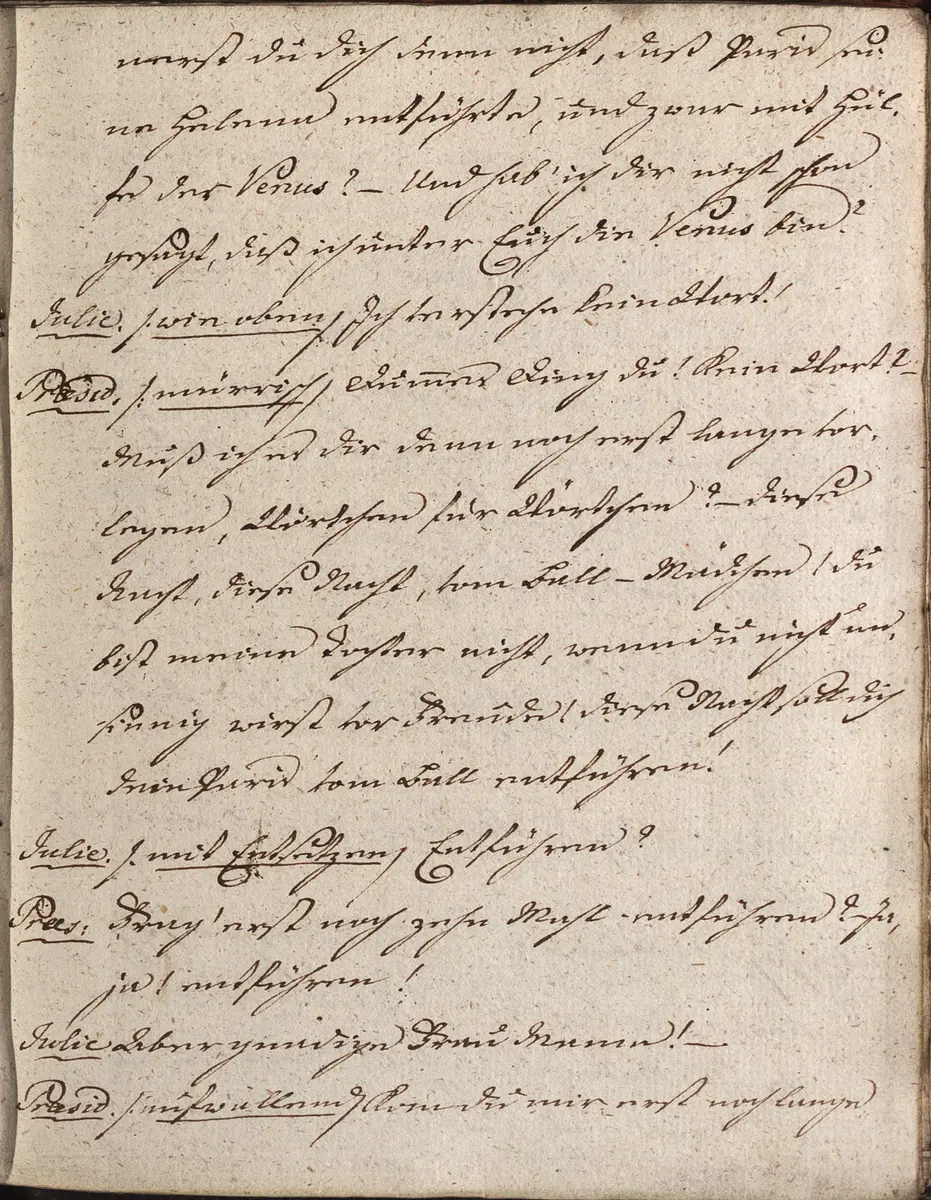 nerst du dich denn nicht, daß Paris sei-
ne Helena entführte, und zwar mit Hül-
fe der Venus? – Und hab' ich dir nicht schon
gesagt, daß ich unter Euch die Venus bin?
Julie. /: wie oben :/ Ich verstehe kein Wort!
Præsid. /: mürrisch :/ Dummes Ding du! kein Wort? –
Muß ich es dir denn noch erst lange vor-
legen, Wörtchen für Wörtchen? – diese
Nacht, diese Nacht, vom Ball – Mädchen! du
bist meine Tochter nicht, wenn du nicht un-
sinnig wirst vor Freude! diese Nacht soll dich
dein Paris vom Ball entführen!
Julie. /: mit Entsetzen :/ Entführen?
Præs: Frag' erst noch zehn Mahl – entführen? – Ja,
ja! entführen!
Julie Aber gnädige Frau Mama! –
Præsid. /: aufwallend :/ Kom du mir erst noch lange